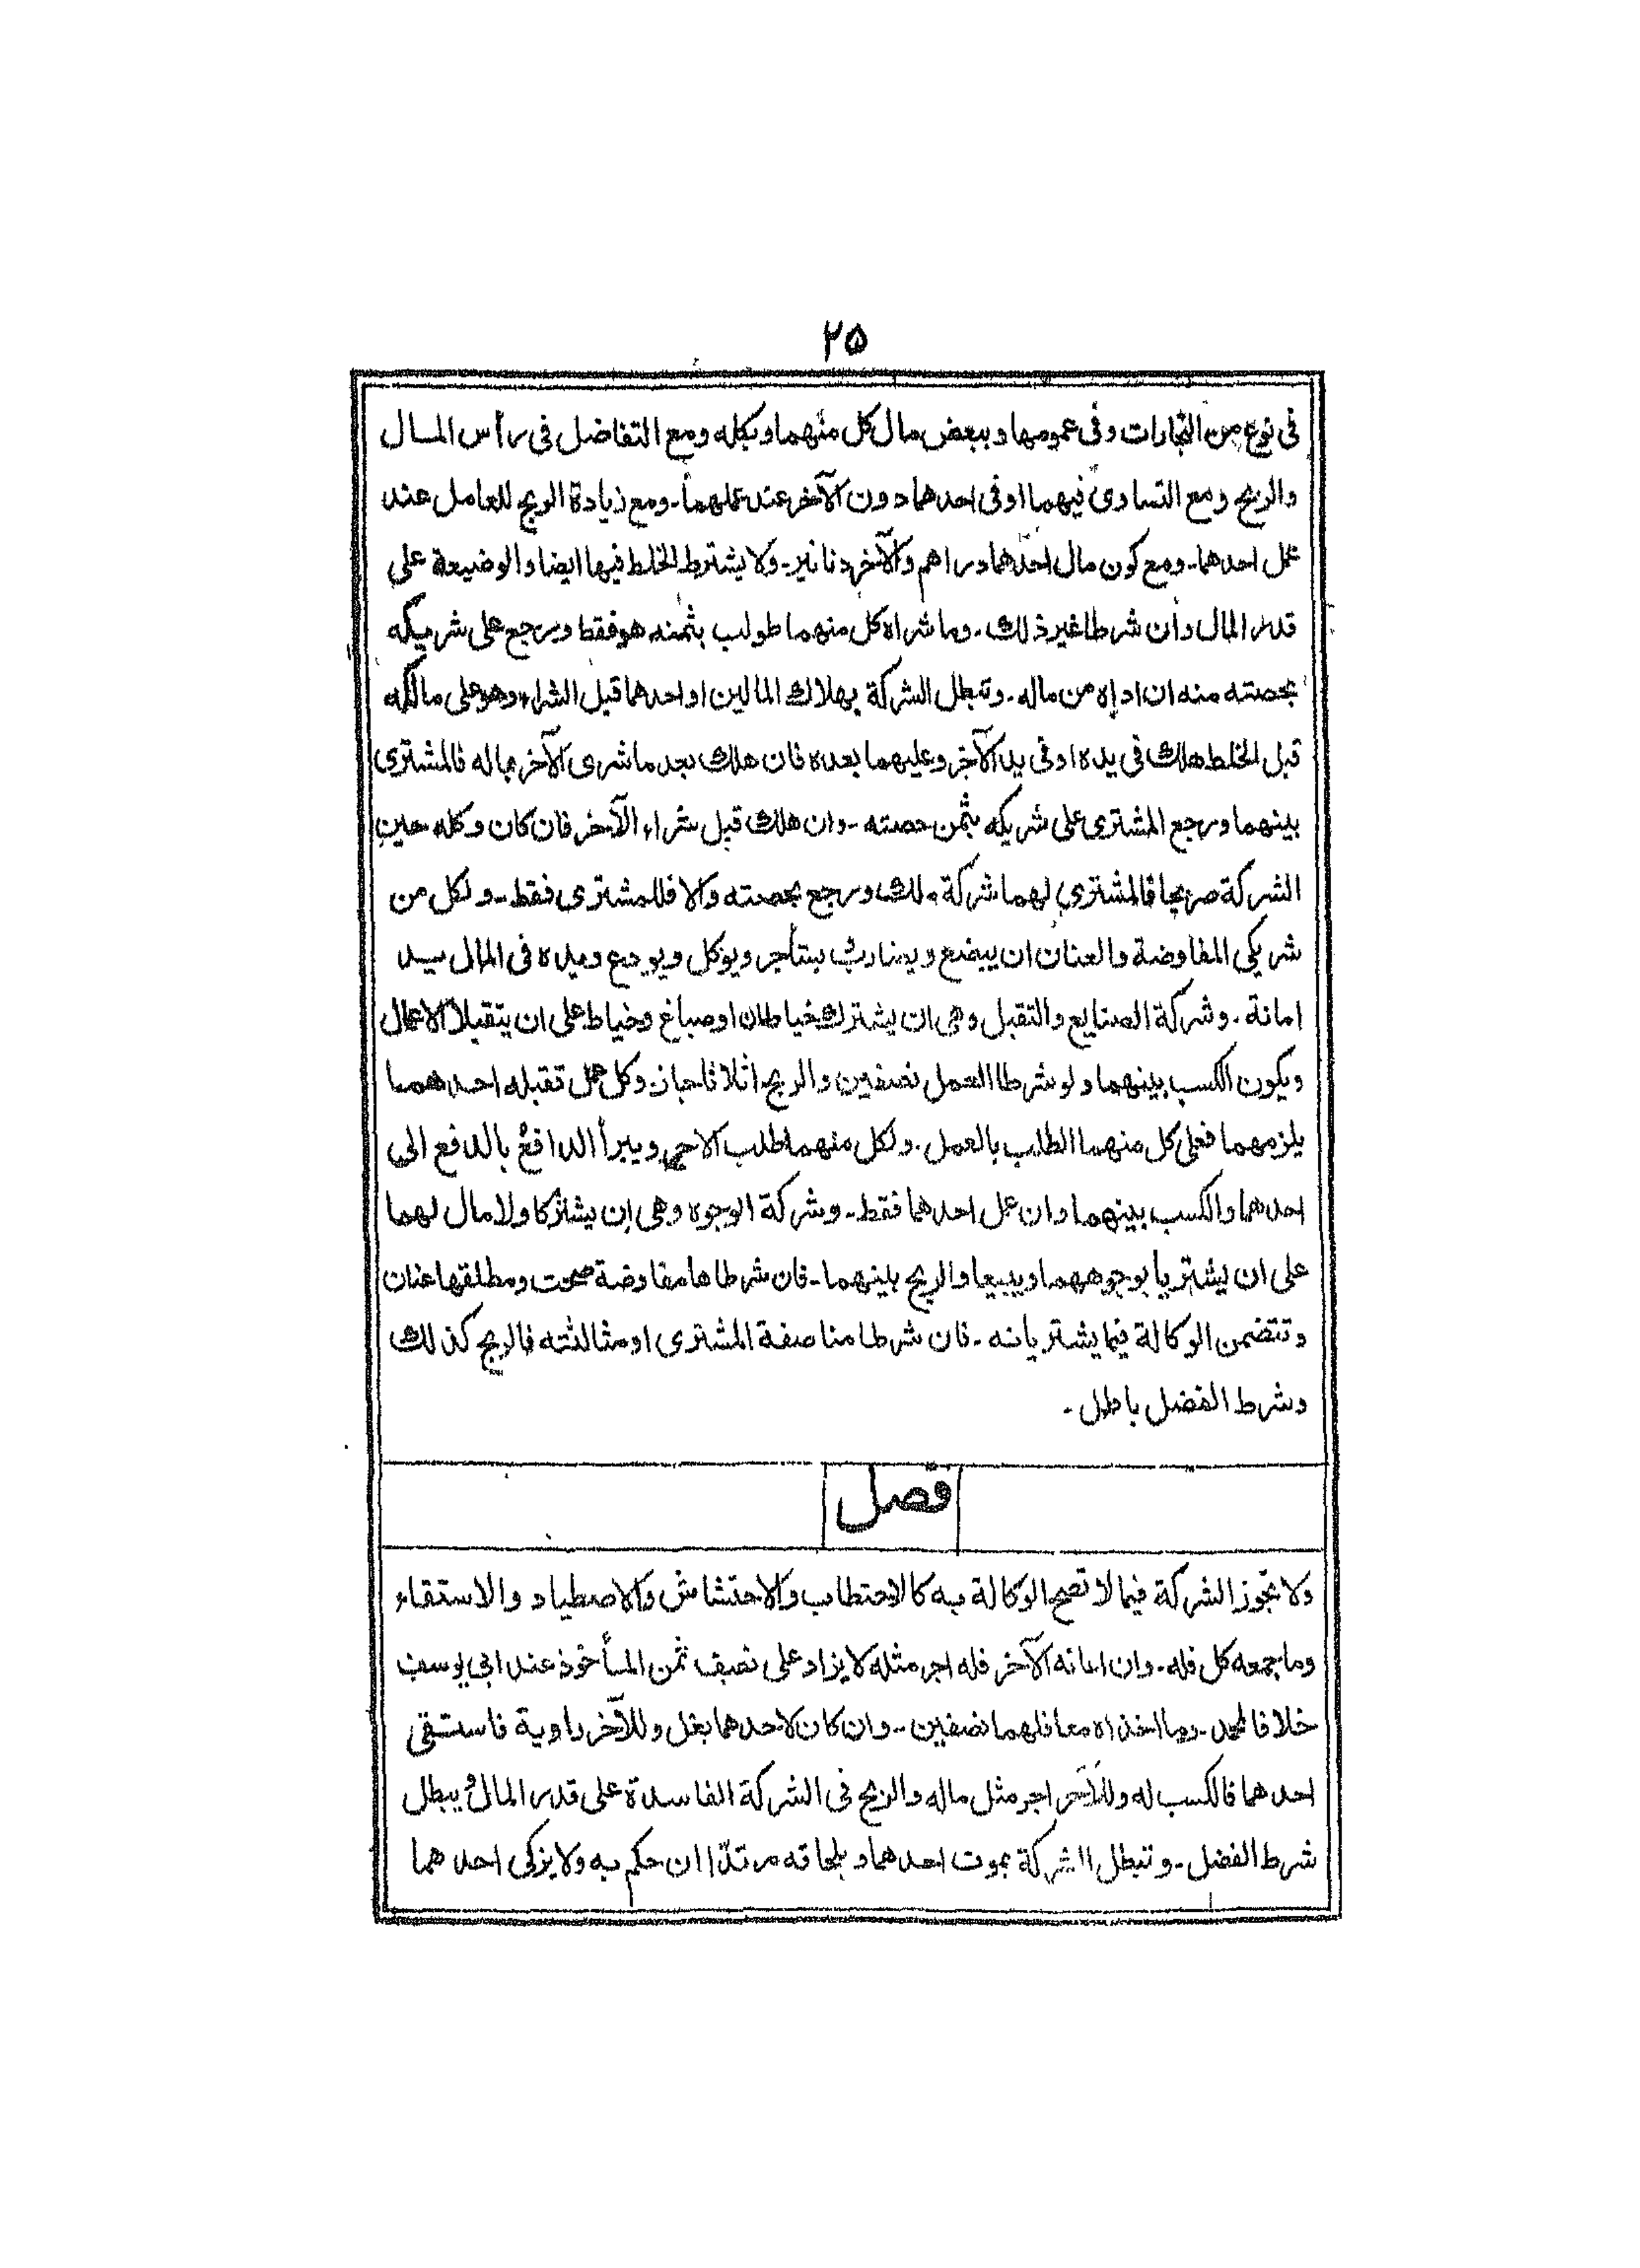 ۲۵
فى نوع من التجارات وفى عمومها وببعض مال كل منهما وبكله ومع التفاضل فى رأس المال
والربح ومع التساوى فيهما اوفى احدهما دون الآخر عند عملهما۔ ومع زيادة الربح للعامل عند
عمل احدهما۔ ومع كون مال احدهما دراهم والآخر دنانير۔ ولا يشترط الخلط فيها ايضا والوضيعة على
قدر المال وان شرطا غير ذلك۔ وما شراه كل منهما طولب بثمنه هو فقط ويرجع على شريكه
بحصته منه ان اداه من ماله۔ وتبطل الشركة بهلاك المالين او احدهما قبل الشراء وهو على مالكه
قبل الخلط هلك فى يده اوفى يد الآخر وعليهما بعده فان هلك بعد ما شرى الآخر بماله فالمشترى
بينهما ورجع المشترى على شريكه بثمن حصته۔ وان هلك قبل شراء الآخر فان كان وكله حين
الشركة صريحا فالمشترى لهما شركة ملك ورجع بحصته والا فللمشترى فقط۔ ولكل من
شريكى المفاوضة والعنان ان يبضع ويضارب ويستأجر ويوكل ويودع ويده فى المال يد
امانة۔ وشركة الصنايع والتقبل وهى ان يشترك خياطان او صباغ وخياط على ان يتقبلا الاعمال
ويكون الكسب بينهما ولو شرطا العمل نصفين والربح اثلاثا جاز۔ وكل عمل تقبله احدهما
يلزمهما فعلى كل منهما الطلب بالعمل۔ ولكل منهما طلب الاجر ويبرأ الدافع بالدفع الى
احدهما والكسب بينهما وان عمل احدهما فقط۔ وشركة الوجوه وهى ان يشتركا ولا مال لهما
على ان يشتريا بوجوههما ويبيعا والربح بينهما۔ فان شرطاها مفاوضة صحت ومطلقها عنان
وتتضمن الوكالة فيما يشتريانه۔ فان شرطا مناصفة المشترى او مثالثته فالربح كذلك
وشرط الفضل باطل۔
فصل
ولا تجوز الشركة فيما لا تصح الوكالة به كالاحتطاب والاحتشاش والاصطياد والاستقاء
وما جمعه كل فله۔ وان اعانه الآخر فله اجر مثله لا يزاد على نصف ثمن المأخوذ عند ابى يوسف
خلافا لمحمد۔ وما اخذاه معا فلهما نصفين۔ وان كان لاحدهما بغل وللآخر راوية فاستقى
احدهما فالكسب له وللآخر اجر مثل ماله والربح فى الشركة الفاسدة على قدر المال و يبطل
شرط الفضل۔ وتبطل الشركة بموت احدهما وبلحاقه مرتدّا ان حكم به ولا يزكى احدهما